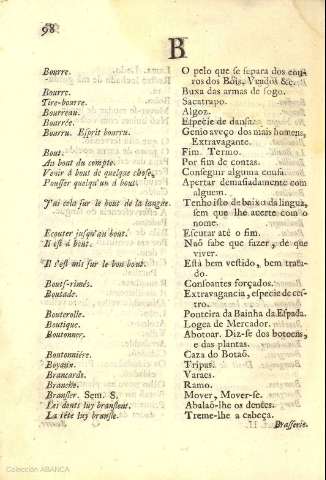 98
B
Bourre. O pelo que se separa dos cou-
ros dos Bois, Veados &c.
Bourre. Buxa das armas de fogo.
Tire-bourre. Sacatrapo.
Bourreau. Algoz.
Bourrée. Especie de dansa.
Bourru. Esprit bourru. Genio aveço dos mais homens,
Extravagante.
Bout. Fim. Termo.
Au bout du compte. Por fim de contas.
Venir à bout de quelque chose, Conseguir alguma cousa.
Pousser quelqu'un à bout. Apertar demasiadamente com
alguem.
J'ai cela sur le bout de la langue. Tenho isso debaixo da lingua,
sem que lhe acerte com o
nome.
Ecouter jusqu'au bout. Escutar até o fim.
Il est à bout. Naõ sabe que fazer, de que
viver.
Il s'est mis sur le bon bout. Está bem vestido, bem trata-
do.
Bouts-rimés. Consoantes forçados.
Boutade. Extravagancia, especie de
Bouterolle. Ponteira da Bainha da Espada.
Boutique. Logea de Mercador.
Boutonner. Abotoar. Diz-se dos botoens,
e das plantas.
Boutonniére. Caza do Botaõ.
Boyaux. Tripas.
Brancards. Varaes.
Branche. Ramo.
Bransler. Sem. 8. Mover, Mover-se.
Les dents luy branslent. Abalaõ-lhe os dentes.
La tête luy bransle. Treme-lhe a cabeça.
Brasserie.
Colección ABANCA